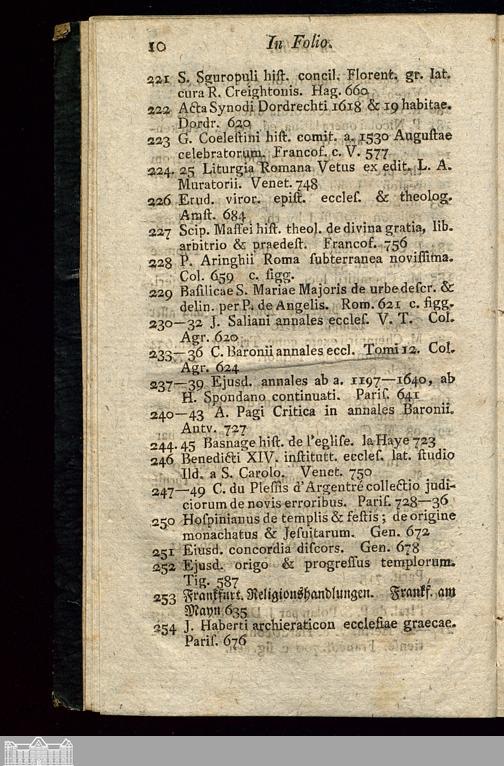 10 In Folio.
221 S. Sguropuli hiſt. concil. Florent. gr. lat.
cura R. Creightonis. Hag. 660
222 Acta Synodi Dordrechti 1618 & 19 habitae.
Dordr. 620
223 G. Coeleſtini hiſt. comit. a. 1530 Auguſtae
celebratorum. Francof. c. V. 577
224. 25 Liturgia Romana Vetus ex edit. L. A.
Muratorii. Venet. 748
226 Erud. viror. epiſt. eccleſ. & theolog.
Amſt. 684
227 Scip. Maffei hiſt. theol. de divina gratia, lib.
arbitrio & praedeſt. Francof. 756
228 P. Aringhii Roma ſubterranea noviſſima.
Col. 659 c. figg.
229 Baſilicae S. Mariae Majoris de urbe deſcr. &
delin. per P. de Angelis. Rom. 621 c. figg.
230—32 J. Saliani annales eccleſ. V. T. Col.
Agr. 620
233—36 C. Baronii annales eccl. Tomi 12. Col.
Agr. 624
237—39 Ejusd. annales ab a. 1197—1640, ab
H. Spondano continuati. Pariſ. 641
240—43 A. Pagi Critica in annales Baronii.
Antv. 727
244. 45 Basnage hiſt. de l'egliſe. la Haye 723
246 Benedicti XIV. inſtitutt. eccleſ. lat. ſtudio
Ild. a S. Carolo. Venet. 750
247—49 C. du Pleſſis d'Argentré collectio judi-
ciorum de novis erroribus. Pariſ. 728—36
250 Hoſpinianus de templis & feſtis; de origine
monachatus & Jeſuitarum. Gen. 672
251 Eiusd. concordia diſcors. Gen. 678
252 Ejusd. origo & progreſſus templorum.
Tig. 587
253 Frankfurt. Religionshandlungen. Frankf. am
Mayn 635
254 J. Haberti archieraticon eccleſiae graecae.
Pariſ. 676